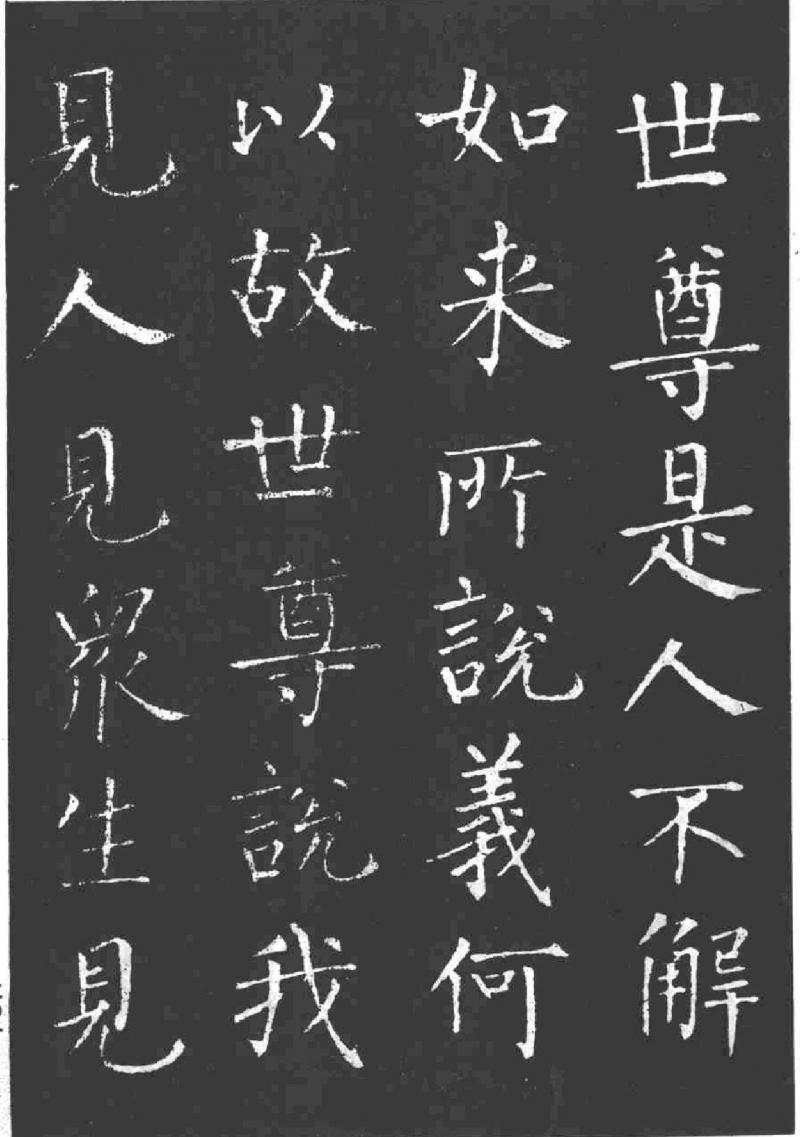 世尊是人不解
如来所說義何
以故世尊說我
見人見眾生見